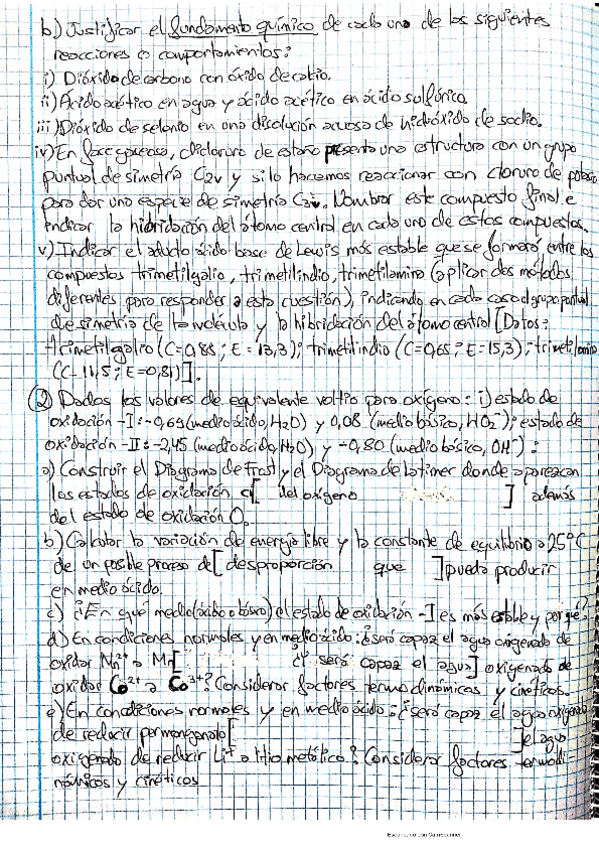 b) Justificar el fundamento químico de cada una de las siguientes
reacciones o comportamientos:
i) Dióxido de carbono con óxido de calcio.
ii) Ácido acético en agua y ácido acético en ácido sulfúrico.
iii) Dióxido de selenio en una disolución acuosa de hidróxido de sodio.
iv) En fase gaseosa, dicloruro de estaño presenta una estructura con un grupo
puntual de simetría C2v y si lo hacemos reaccionar con cloruro de potasio
para dar una especie de simetría C3v. Nombrar este compuesto final e
indicar la hibridación del átomo central en cada uno de estos compuestos.
v) Indicar el aducto ácido base de Lewis más estable que se formará entre los
compuestos trimetilgalio, trimetilindio, trimetilamina (aplicar dos métodos
diferentes para responder a esta cuestión), indicando en cada caso el grupo puntual
de simetría de la molécula y la hibridación del átomo central [Datos:
trimetilgalio (C=0,88; E=13,3); trimetilindio (C=0,65; E=15,3); trimetilamina
(C=11,5; E=0,81)].
② Dados los valores de equivalente voltio para oxígeno: i) estado de
oxidación -I: -0,69 (medio ácido, H2O) y 0,08 (medio básico, HO2-); estado de
oxidación -II: -2,45 (medio ácido, H2O) y -0,80 (medio básico, OH-):
a) Construir el Diagrama de Frost y el Diagrama de Latimer donde aparezcan
los estados de oxidación [ del oxígeno ] además
del estado de oxidación 0.
b) Calcular la variación de energía libre y la constante de equilibrio a 25°C
de un posible proceso de [ desproporción que ] pueda producir
en medio ácido.
c) ¿En qué medio (ácido o básico) el estado de oxidación -I es más estable y por qué?
d) En condiciones normales y en medio ácido: ¿será capaz el agua oxigenada de
oxidar Mn2+ a Mn[ ¿Y será capaz el agua] oxigenada de
oxidar Co2+ a Co3+? Considerar factores termodinámicos y cinéticos.
e) En condiciones normales y en medio ácido: ¿será capaz el agua oxigenada
de reducir permanganato [ ] el agua
oxigenada de reducir Li+ a litio metálico? Considerar factores termodi-
námicos y cinéticos